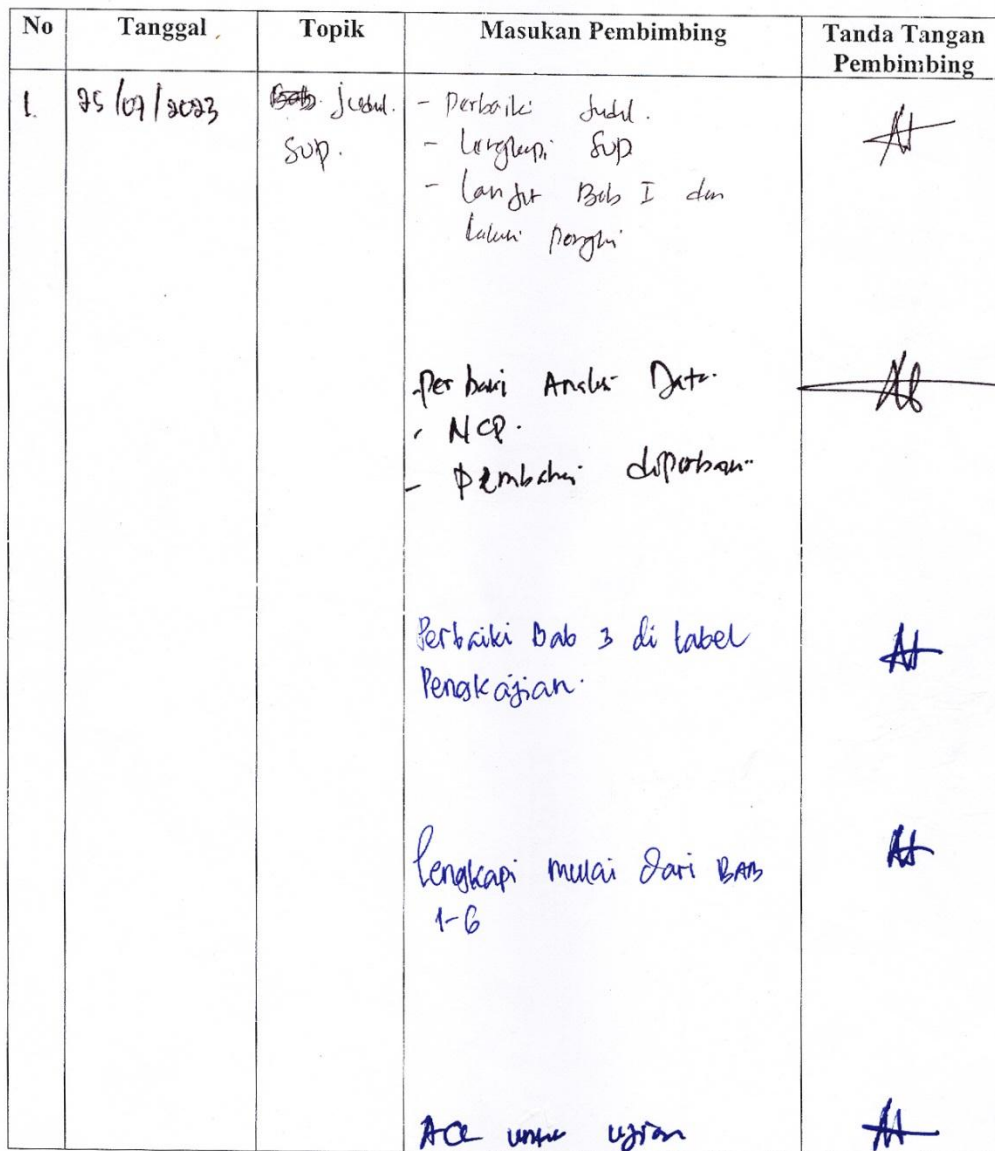 No Tanggal Topik Masukan Pembimbing Tanda Tangan Pembimbing
1. 25/07/2023 Judul. - Perbaiki Judul.
Sup. - Lengkapi Sup
- Lanjut Bab I dan
Perbaiki Data.
- NCP.
-
Perbaiki Bab 3 di tabel
Pengkajian.
Lengkapi mulai dari BAB
1-6
ACC untuk ujian